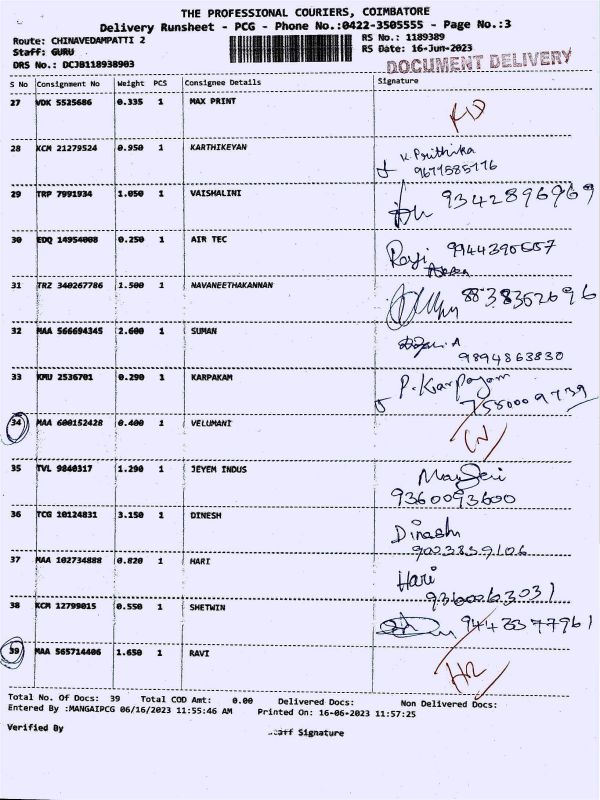 THE PROFESSIONAL COURIERS, COIMBATORE
Delivery Runsheet - PCG - Phone No.:0422-3505555 - Page No.:3
Route: CHINAVEDAMPATTI 2 RS No.: 1189389
Staff: GURU RS Date: 16-Jun-2023
DRS No.: DCJB118938903 DOCUMENT DELIVERY
S No Consignment No Weight PCS Consignee Details Signature
27 VDK 5525686 0.335 1 MAX PRINT
28 KCM 21279524 0.950 1 KARTHIKEYAN K. Prithika
9677585776
29 TRP 7991934 1.050 1 VAISHALINI 9342896969
30 EDQ 14954008 0.250 1 AIR TEC Raji 9944390557
31 TRZ 340267786 1.500 1 NAVANEETHAKANNAN 8838352696
32 MAA 566694345 2.600 1 SUMAN
9894863830
33 KMU 2536701 0.290 1 KARPAKAM P. Karpagam
7550009739
34 MAA 600152428 0.400 1 VELUMANI
35 TVL 9840317 1.290 1 JEYEM INDUS
9360093600
36 TCG 10124831 3.150 1 DINESH Dinash
9023859106
37 MAA 102734888 0.820 1 HARI Hari
9360263031
38 KCM 12799015 0.550 1 SHETWIN 9443377961
39 MAA 565714406 1.650 1 RAVI
Total No. Of Docs: 39 Total COD Amt: 0.00 Delivered Docs: Non Delivered Docs:
Entered By :MANGAIPCG 06/16/2023 11:55:46 AM Printed On: 16-06-2023 11:57:25
Verified By Staff Signature